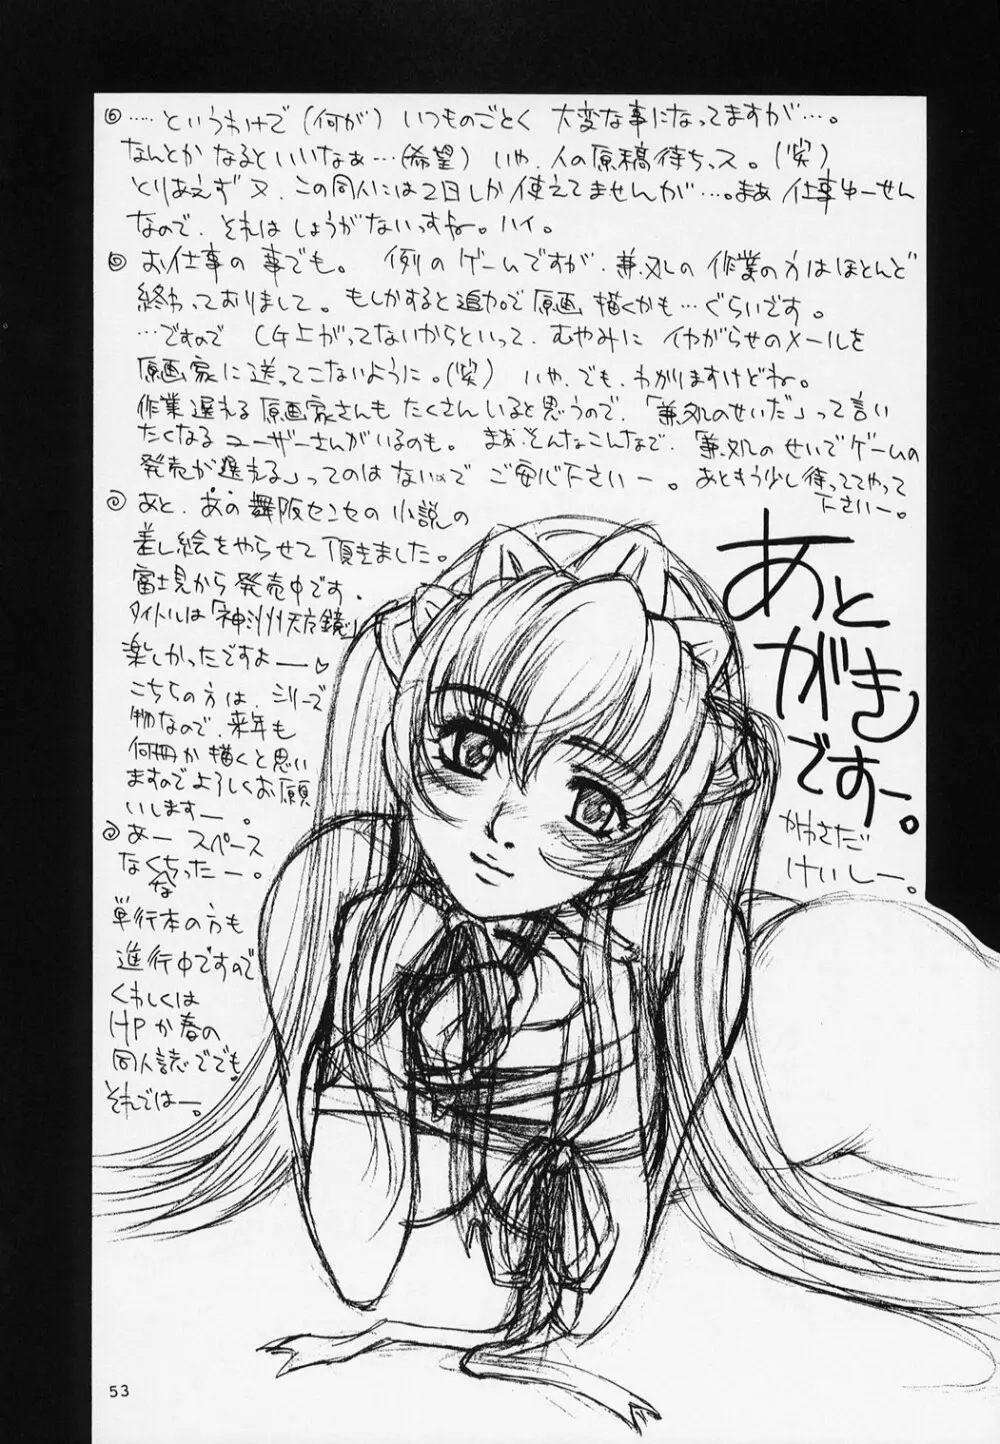 ……というわけで(何が)いつものごとく 大変な事になってますが…。
なんとか なるといいなぁ…(希望) いや、人の原稿待ちっス。(笑)
とりあえず又、この同人には2日しか使えてませんが…。まあ 仕事中ーせん
なので、それは しょうがないっすね。ハイ。
お仕事の事でも。 例のゲームですが、兼処しの作業の方はほとんど
終わっておりまして。もしかすると追加で原画 描くかも…ぐらいです。
…ですので CG上がってないからといって、むやみに イヤがらせのメールを
原画家に送ってこないように。(笑) いや、でも、わかりますけどね。
作業遅れる原画家さんも たくさんいると思うので、「兼処しのせいだ」って言い
たくなるユーザーさんがいるのも。 まぁ、そんなこんなで、「兼処しのせいでゲームの
発売が遅れる」ってのはないのでご安心下さいー。あともう少し待っててやって
下さいー。
あと、あの舞阪センセの小説の
差し絵をやらせて頂きました。
富士見から発売中です。
タイトルは「神州天方鏡」
楽しかったですよー♡
こちらの方は、シリーズ
物なので、来年も
何冊か描くと思い
ますのでよろしくお願
いしますー。
あー スペース
なくなっちったー。
単行本の方も
進行中ですので
くわしくは
HPか春の
同人誌ででも。
それではー。
あと
がき
ですー。
かわさだ
けいしー。
53